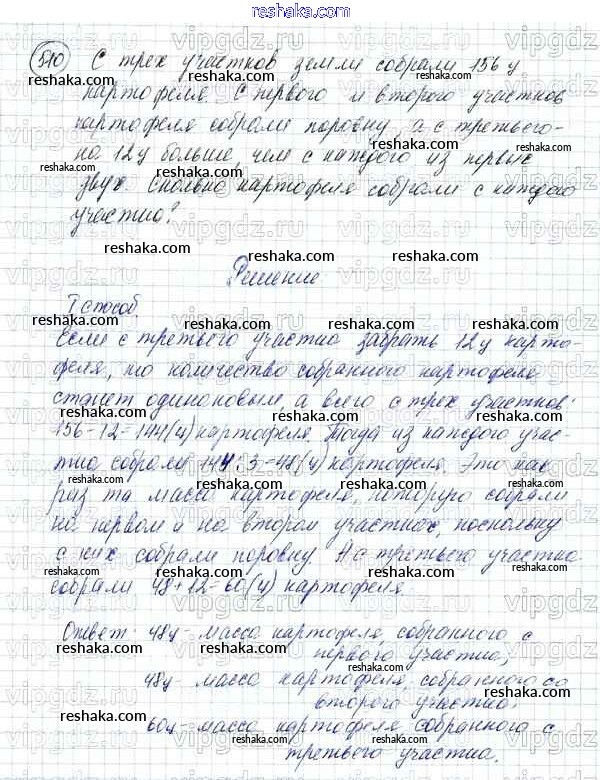 reshaka.com
510 С трех участков земли собрали 156 ц
картофеля. С первого и второго участков
картофеля собрали поровну, а с третьего -
на 12 ц больше, чем с каждого из первых
двух. Сколько картофеля собрали с каждого
участка?
Решение
I способ
Если с третьего участка забрать 12 ц карто-
феля, то количество собранного картофеля
станет одинаковым, а всего с трех участков:
156-12=144(ц) картофеля. Тогда из каждого учас-
тка собрали 144:3=48(ц) картофеля. Это как
раз та масса картофеля, которую собрали
на первом и на втором участках, поскольку
с них собрали поровну. А с третьего участка
собрали 48+12=60(ц) картофеля.
Ответ: 48ц - масса картофеля, собранного с
первого участка;
48ц - масса картофеля, собранного со
второго участка;
60ц - масса картофеля собранного с
третьего участка.